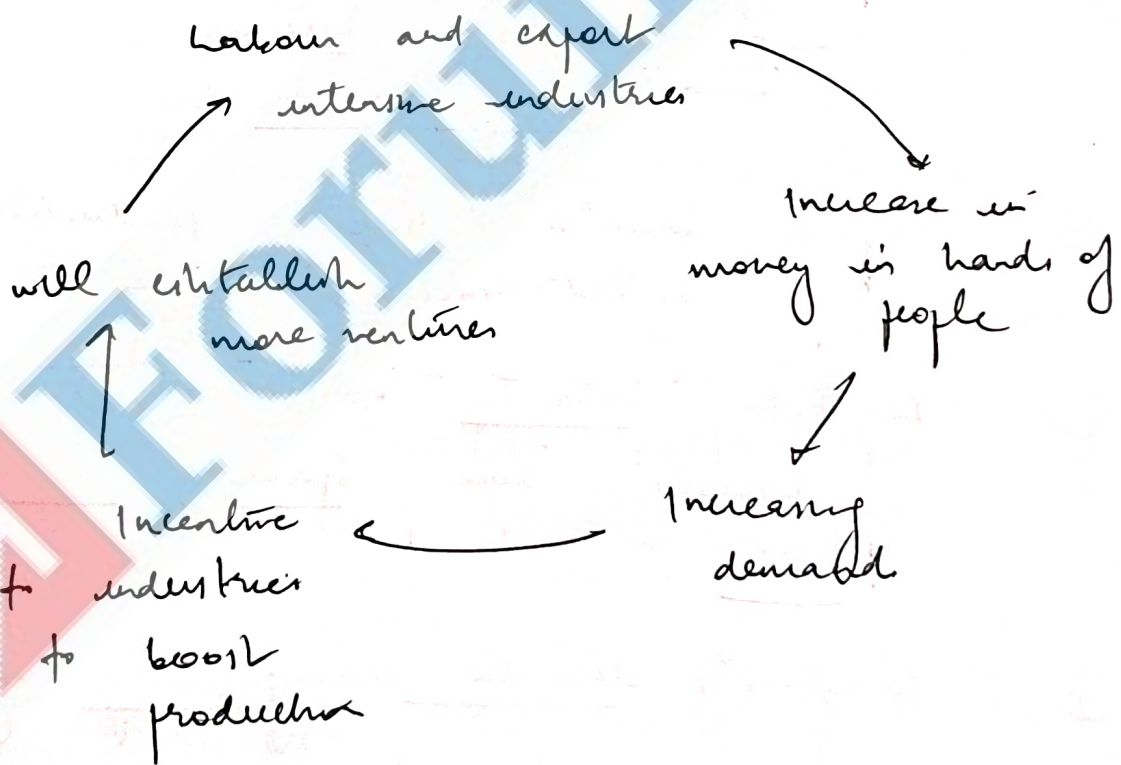 Labour and export
intensive industries
Increase in
money in hands of
people
Increasing
demand
Incentive
to industries
to boost
production
will establish
more ventures
Forum